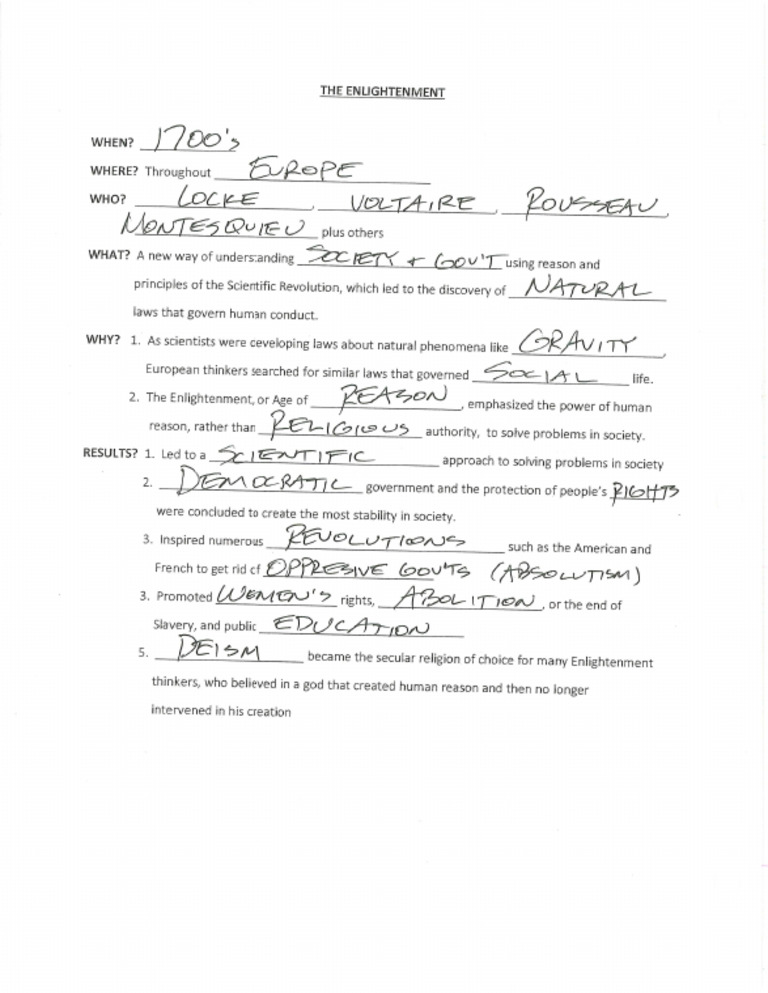 THE ENLIGHTENMENT
WHEN? 1700's
WHERE? Throughout EUROPE
WHO? LOCKE, VOLTAIRE, ROUSSEAU,
MONTESQUIEU plus others
WHAT? A new way of understanding SOCIETY + GOV'T using reason and
principles of the Scientific Revolution, which led to the discovery of NATURAL
laws that govern human conduct.
WHY? 1. As scientists were ceveloping laws about natural phenomena like GRAVITY,
European thinkers searched for similar laws that governed SOCIAL life.
2. The Enlightenment, or Age of REASON, emphasized the power of human
reason, rather than RELIGIOUS authority, to solve problems in society.
RESULTS? 1. Led to a SCIENTIFIC approach to solving problems in society
2. DEMOCRATIC government and the protection of people's RIGHTS
were concluded to create the most stability in society.
3. Inspired numerous REVOLUTIONS such as the American and
French to get rid of OPPRESIVE GOV'TS (ABSOLUTISM)
3. Promoted WOMEN'S rights, ABOLITION, or the end of
Slavery, and public EDUCATION
5. DEISM became the secular religion of choice for many Enlightenment
thinkers, who believed in a god that created human reason and then no longer
intervened in his creation